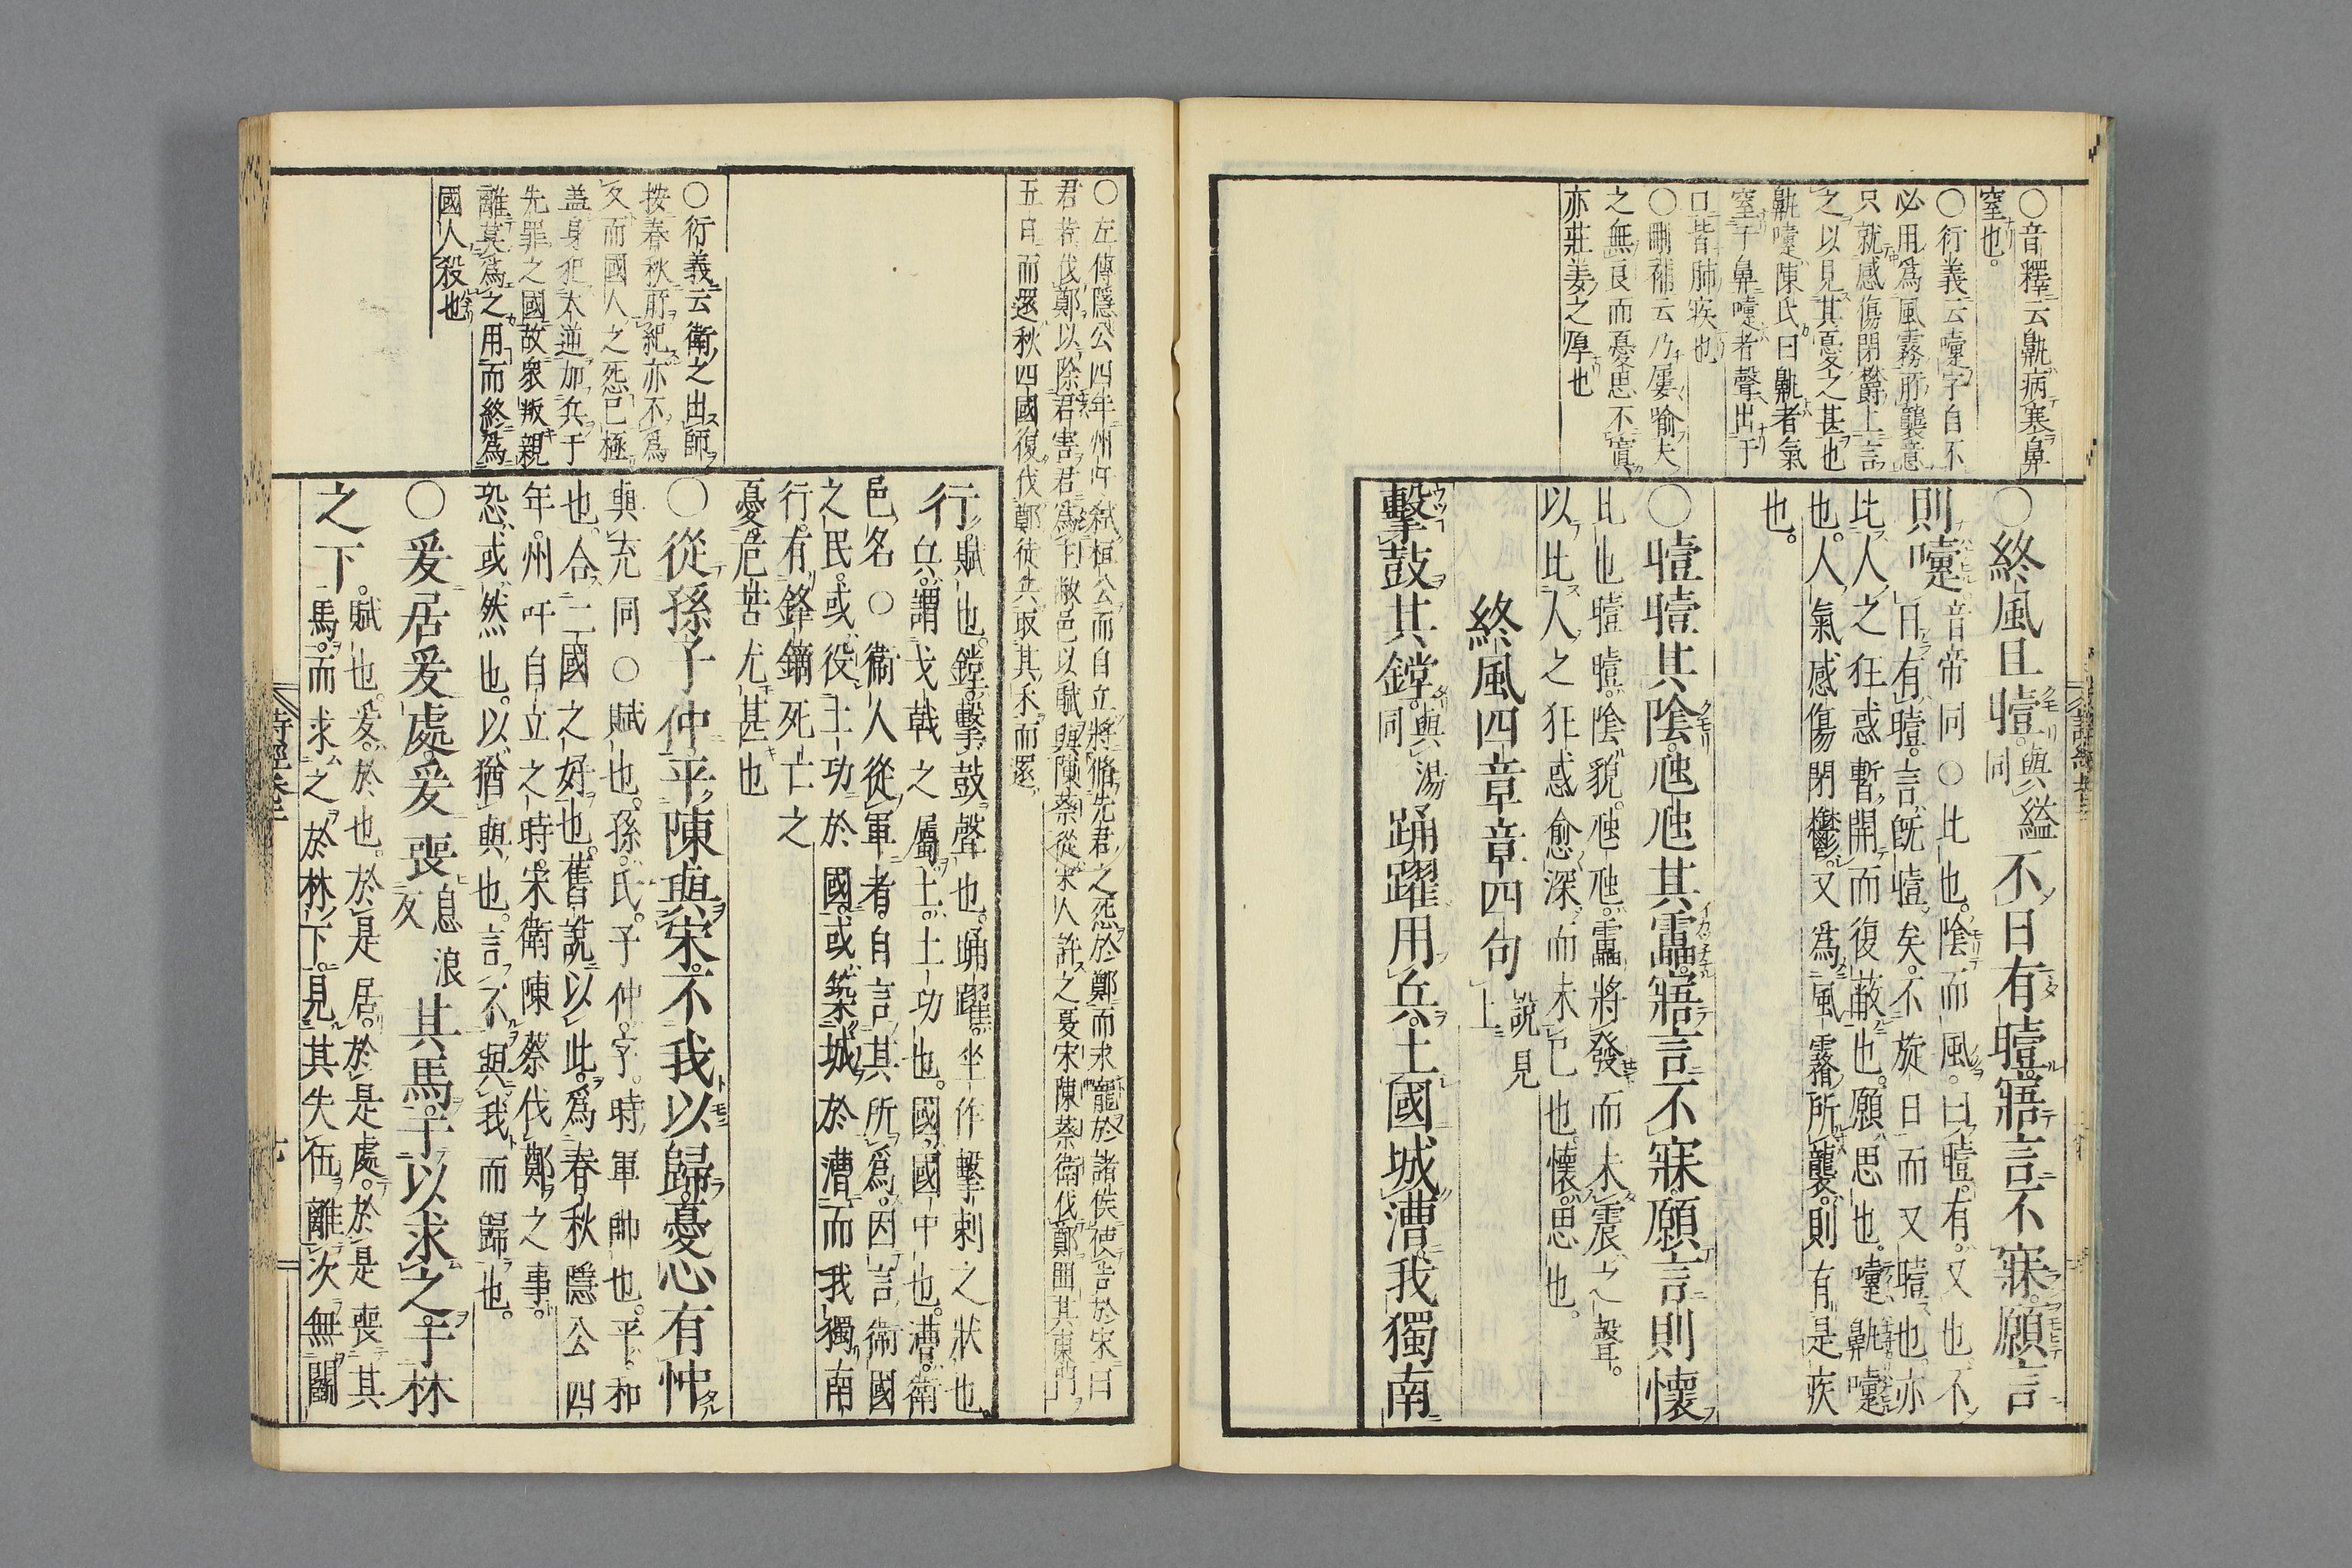 ○音釋云鼽病塞鼻
窒也。
○行義云嚏字自不
必用爲風霧所襲意
只就感傷閉欝上言
之以見其憂之甚也
鼽嚏陳氏曰鼽者氣
窒于鼻嚏者聲出于
口皆肺疾也
○刪補云乃屢喻夫
之無良而憂思不寘
亦莊姜之厚也
○終風且曀與縊同不日有曀寤言不寐願言
則嚏音帝同○比也陰而風曰曀有又也不
日有曀言既曀矣不旋日而又曀也亦
比人之狂惑暫開而復蔽也願思也嚏鼽嚏
也人氣感傷閉鬱又爲風霧所襲則有是疾
也。
○曀曀其陰虺虺其靁寤言不寐願言則懷
比也曀曀陰貌虺虺靁將發而未震之聲。
以比人之狂惑愈深而未已也懷思也。
終風四章章四句說見上
擊鼓其鏜與湯同踊躍用兵土國城漕我獨南
○左傳隱公四年州吁弑桓公而自立將脩先君之怨於鄭而求寵於諸侯使告於宋曰
君若伐鄭以除君害君爲主敝邑以賦與陳蔡從宋人許之㪅宋陳蔡衛伐鄭圍其東門
五日而還秋四國復伐鄭徒兵取其禾而還
行賦也鏜擊鼓聲也踊躍坐作擊刺之狀也
兵謂戈戟之屬土土功也國國中也漕衛
邑名○衛人從軍者自言其所爲因言衛國
之民或役土功於國或築城於漕而我獨南
行有鋒鏑死亡之
憂危苦尤甚也
○從孫子仲平陳與宋不我以歸憂心有忡
與充同○賦也孫氏子仲字時軍帥也平和
也合二國之好也舊說以此爲春秋隱公四
年州吁自立之時宋衛陳蔡伐鄭之事。
恐或然也以猶與也言不與我而歸也。
○爰居爰處爰喪息浪反其馬于以求之于林
之下。賦也爰於也於是居於是處於是喪其
馬而求之於林下見其失伍離次無鬬
○行義云衛之出師
按春秋所紀亦不爲
久而國人之怨已極
蓋身犯大逆加兵于
先罪之國故衆叛親
離莫爲之用而終爲
國人殺也
詩經卷二